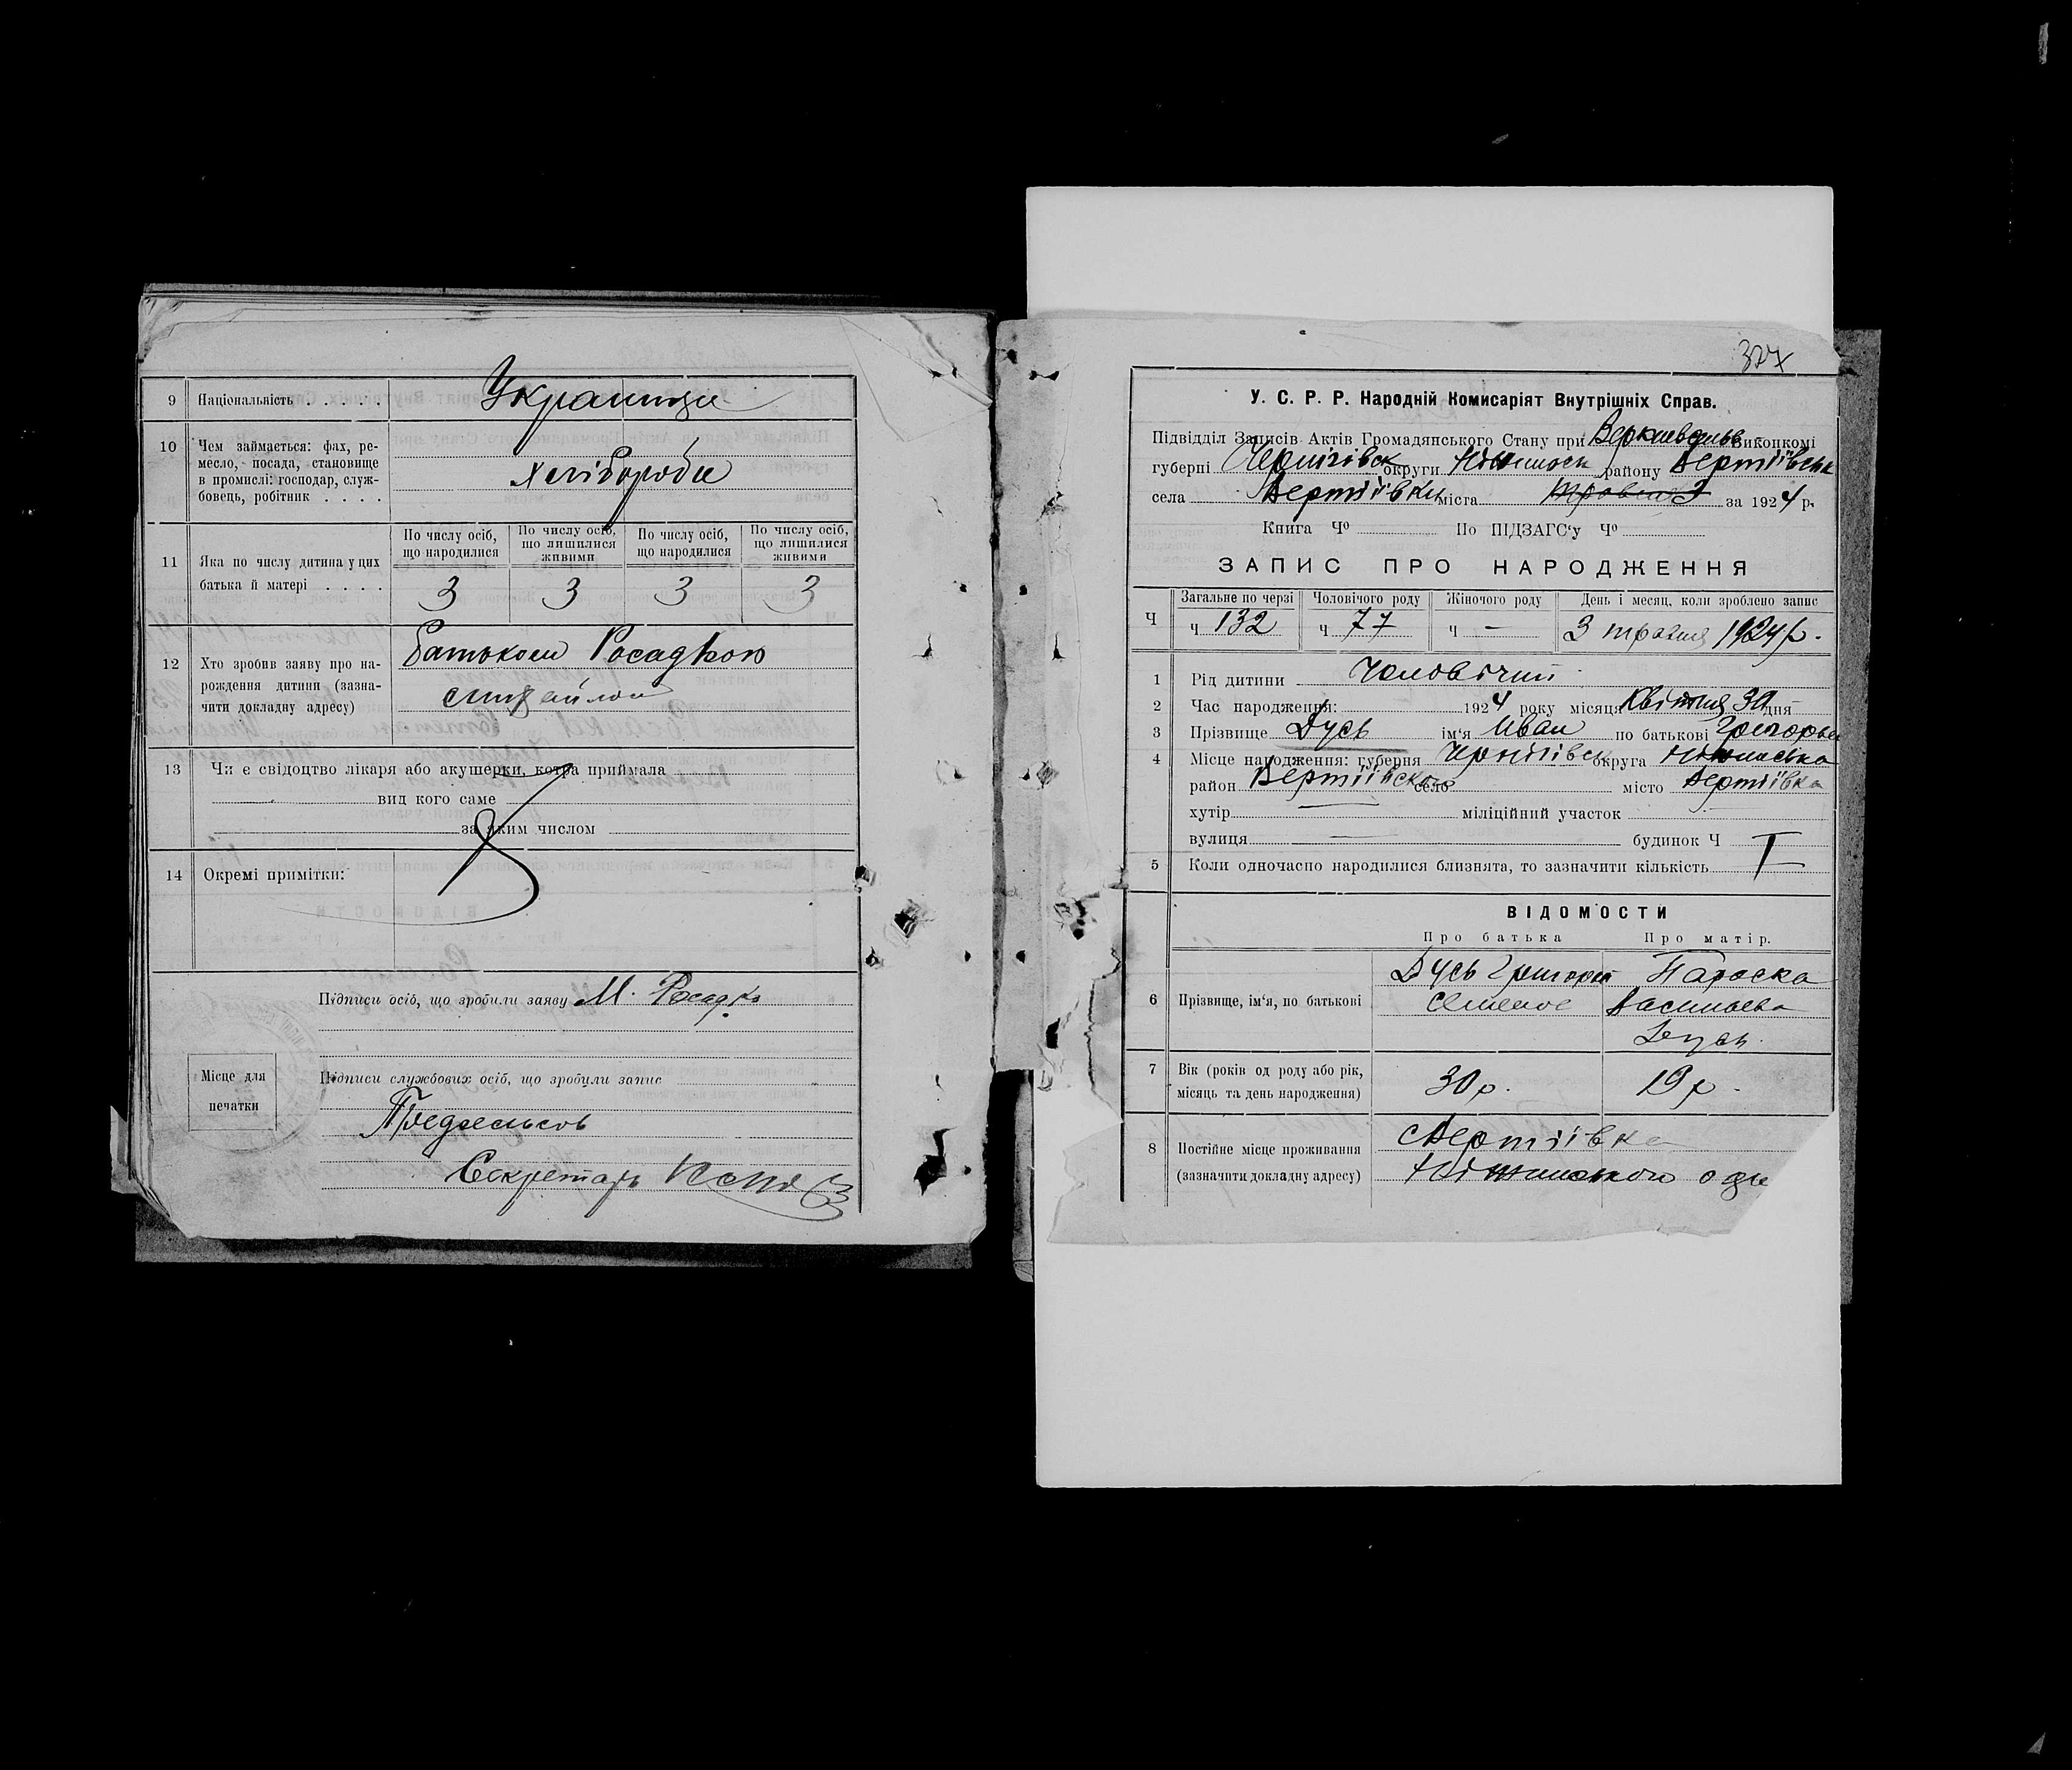 9 Національність . . . . . Украинци
10 Чем займається: фах, ре-
месло, посада, становище
в промислі: господар, служ-
бовець, робітник . . . .
хлібороби
11 Яка по числу дитина у цих
батька й матері . . . .
По числу осіб, що народилися
По числу осіб, що лишилися живими
По числу осіб, що народилися
По числу осіб, що лишилися живими
3 3 3 3
12 Хто зробив заяву про на-
рождення дитини (зазна-
чити докладну адресу)
Батьком Росадкою
Михайлом
13 Чи є свідоцтво лікаря або акушерки, котра приймала
вид кого саме
за яким числом
14 Окремі примітки:
Підписи осіб, що зробили заяву М. Росадко
Місце для
печатки
Підписи службових осіб, що зробили запис
Предсельсов
Секретарь
У. С. Р. Р. Народній Комисаріят Внутрішніх Справ.
Підвідділ Записів Актів Громадянського Стану при Виконкомі
губерні Чернігівск округи Ніжинськ району Вертіївськ
села Вертіївки міста за 1924 р.
Книга Ч° По ПІДЗАГС'у Ч°
ЗАПИС ПРО НАРОДЖЕННЯ
Ч
Загальне по черзі Чоловічого роду Жіночого роду День і месяц, коли зроблено запис
Ч 132 Ч 77 Ч — 3 травня 1924 р.
1 Рід дитини Чоловічий
2 Час народження: 1924 року місяця Квітня 30 дня
3 Прізвище Дусь ім'я Иван по батькові Григорьев
4 Місце народження: губерня Чернігівск округа Ніжинська
район Вертіївского село місто Вертіївка
хутір — міліційний участок
вулиця — будинок Ч
5 Коли одночасно народилися близнята, то зазначити кількість
ВІДОМОСТИ
Про батька Про матір.
6 Прізвище, ім'я, по батькові
Дусь Григорій
Семенов
Параска
Васильева
Дусь
7 Вік (років од роду або рік,
місяць та день народження)
30 р. 19 р.
8 Постійне місце проживання
(зазначити докладну адресу)
с Вертіївка
Ніжинського